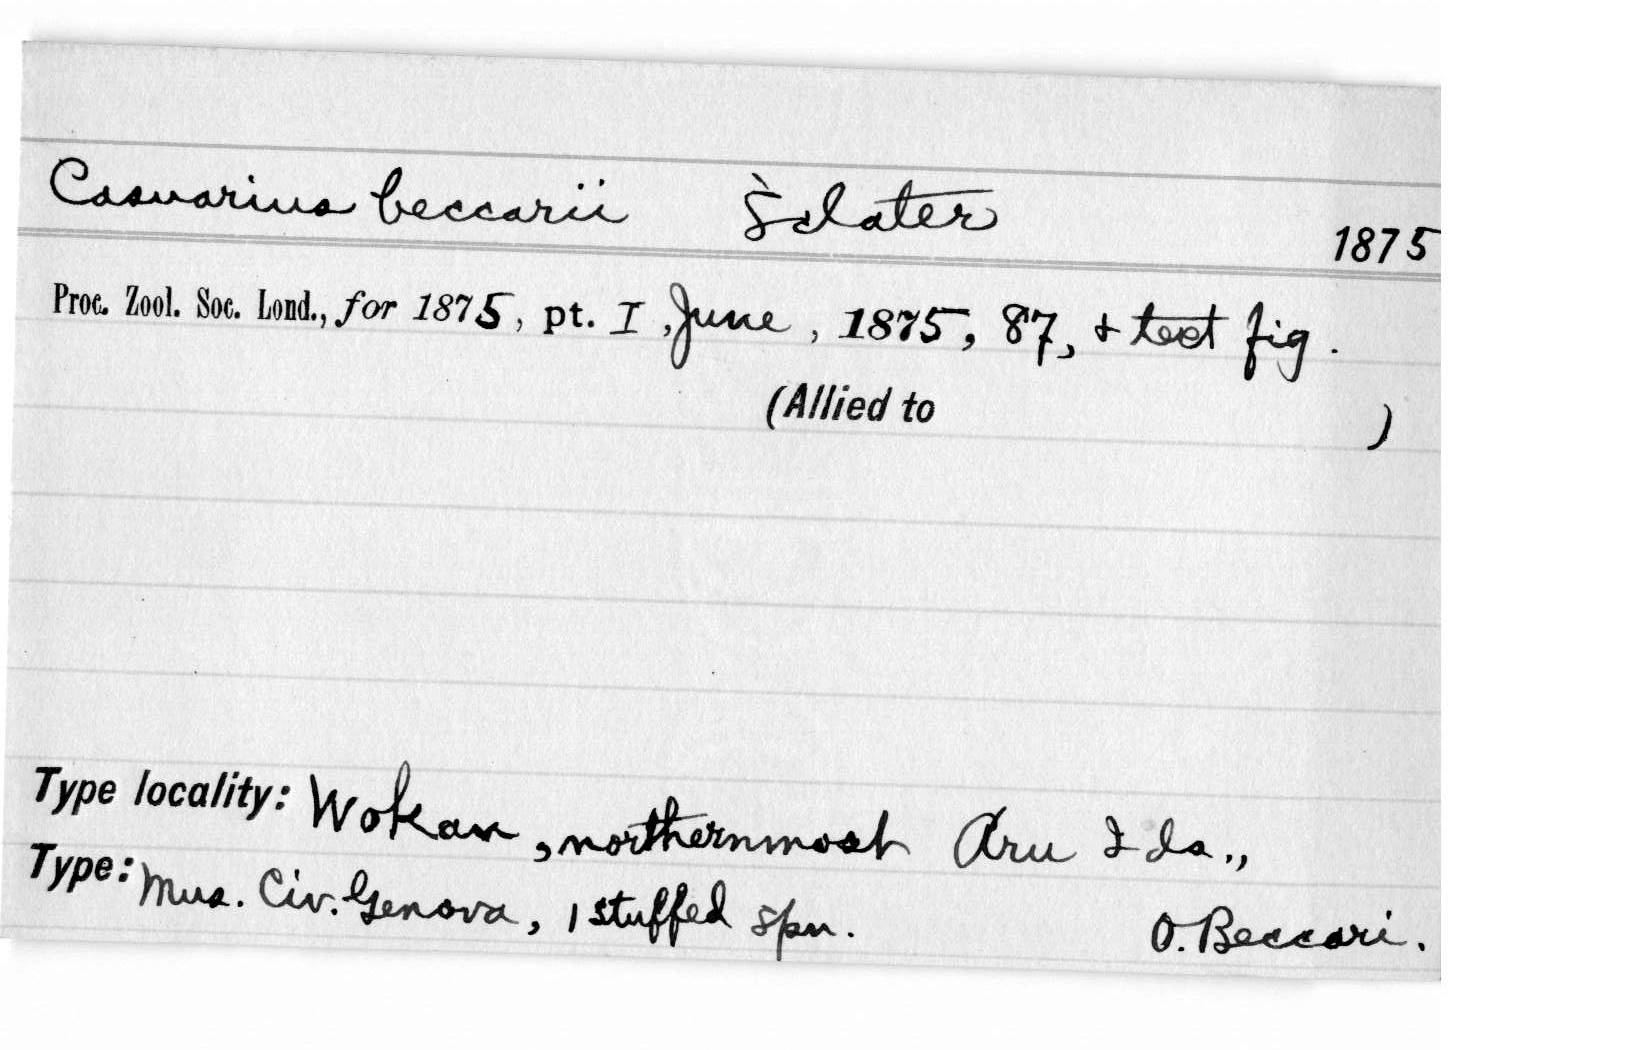 Casuarius beccarii Sclater
1875
Proc. Zool. Soc. Lond., for 1875, pt. I, June, 1875, 87, & text fig.
(Allied to )
Type locality: Wokan, northernmost Aru Ids.,
Type: Mus. Civ. Genova, 1 stuffed spn. O. Beccari.